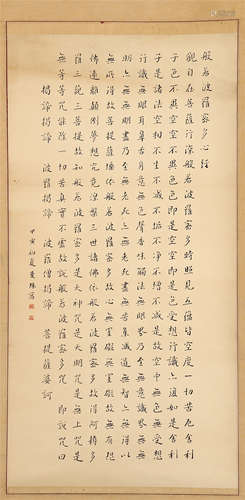 般若波羅蜜多心經
觀自在菩薩行深般若波羅蜜多時照見五蘊皆空度一切苦厄舍利
子色不異空空不異色色即是空空即是色受想行識亦復如是舍利
子是諸法空相不生不滅不垢不淨不增不減是故空中無色無受想
行識無眼耳鼻舌身意無色聲香味觸法無眼界乃至無意識界無無
明亦無無明盡乃至無老死亦無老死盡無苦集滅道無智亦無得以
無所得故菩提薩埵依般若波羅蜜多故心無罣礙無罣礙故無有恐
怖遠離顛倒夢想究竟涅槃三世諸佛依般若波羅蜜多故得阿耨多
羅三藐三菩提故知般若波羅蜜多是大神咒是大明咒是無上咒是
無等等咒能除一切苦真實不虛故說般若波羅蜜多咒 即說咒曰
揭諦揭諦 波羅揭諦 波羅僧揭諦 菩提薩婆訶
甲寅